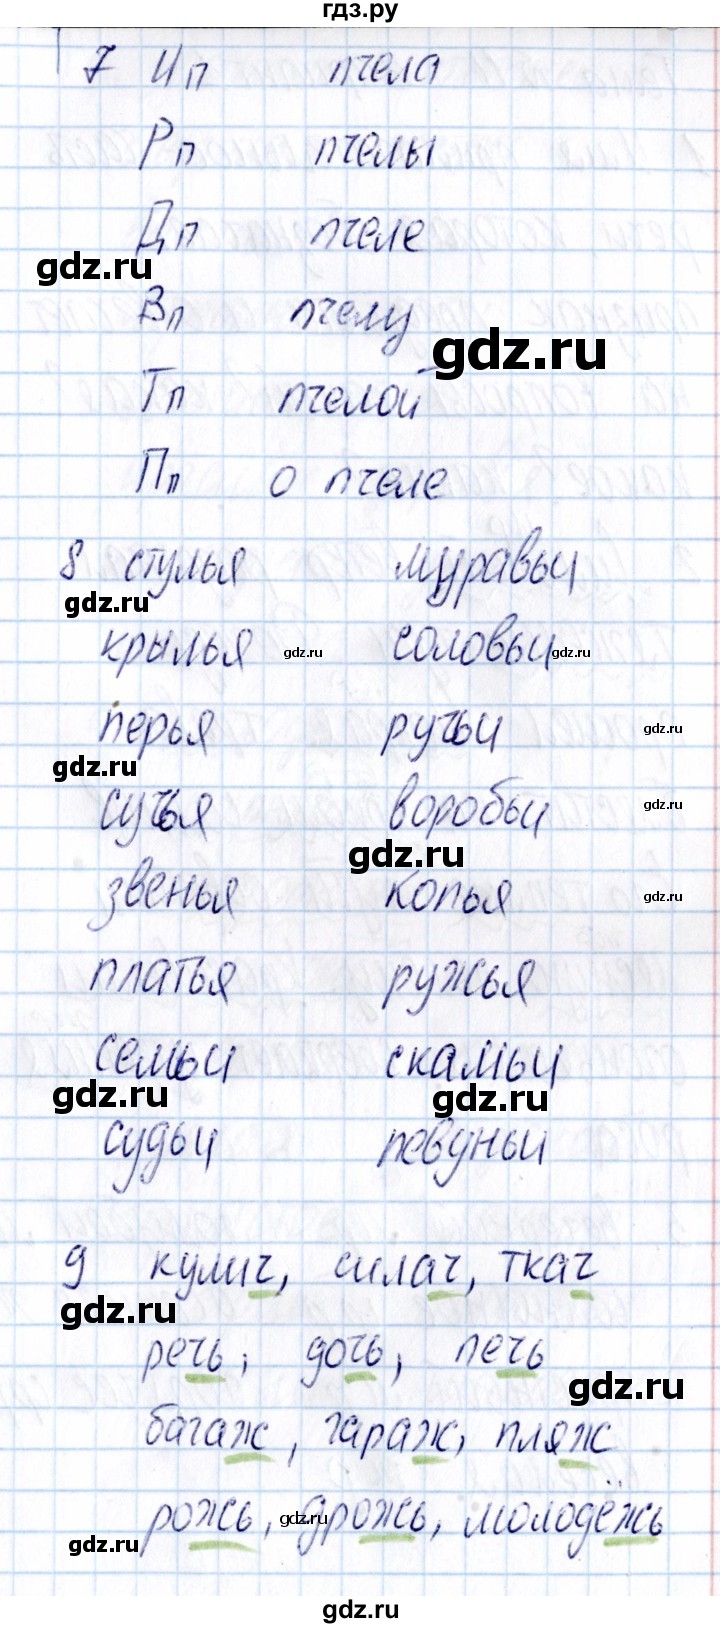 гдз.ру
7 Ип пчела
Рп пчелы
Дп пчеле
gdz.ru
Вп пчелу
gdz.ru
Тп пчелой
Пп о пчеле
8 стулья муравьи
gdz.ru
крылья gdz.ru соловьи gdz.ru
перья ручьи gdz.ru
gdz.ru
сучья воробьи gdz.ru
gdz.ru
звенья копья gdz.ru
платья ружья
семьи скамьи
gdz.ru gdz.ru
судьи певуньи
9 кулич, силач, ткач
gdz.ru
речь, дочь, печь
gdz.ru
багаж, гараж, пляж
рожь, gdz.ru дрожь, молодёжь
gdz.ru
gdz.ru